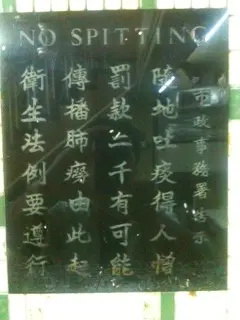 NO SPITTING
市政事務署告示
隨地吐痰得人憎
罰款二千有可能
傳播肺癆由此起
衞生法例要遵行